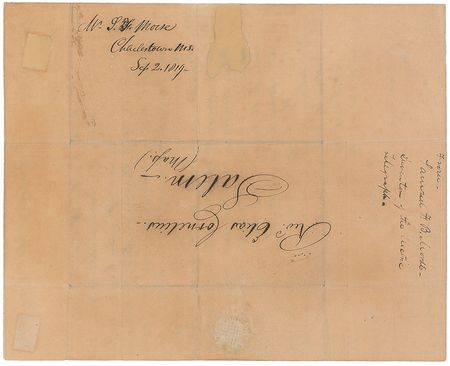 Mr. S. F. Morse
Charlestown Ms.
Sep 2. 1819-
Rev. Elias Cornelius.-
Salem.-
(Mass.)
From-
Samuel F. B. Morse-
Inventor of the wire
telegraph